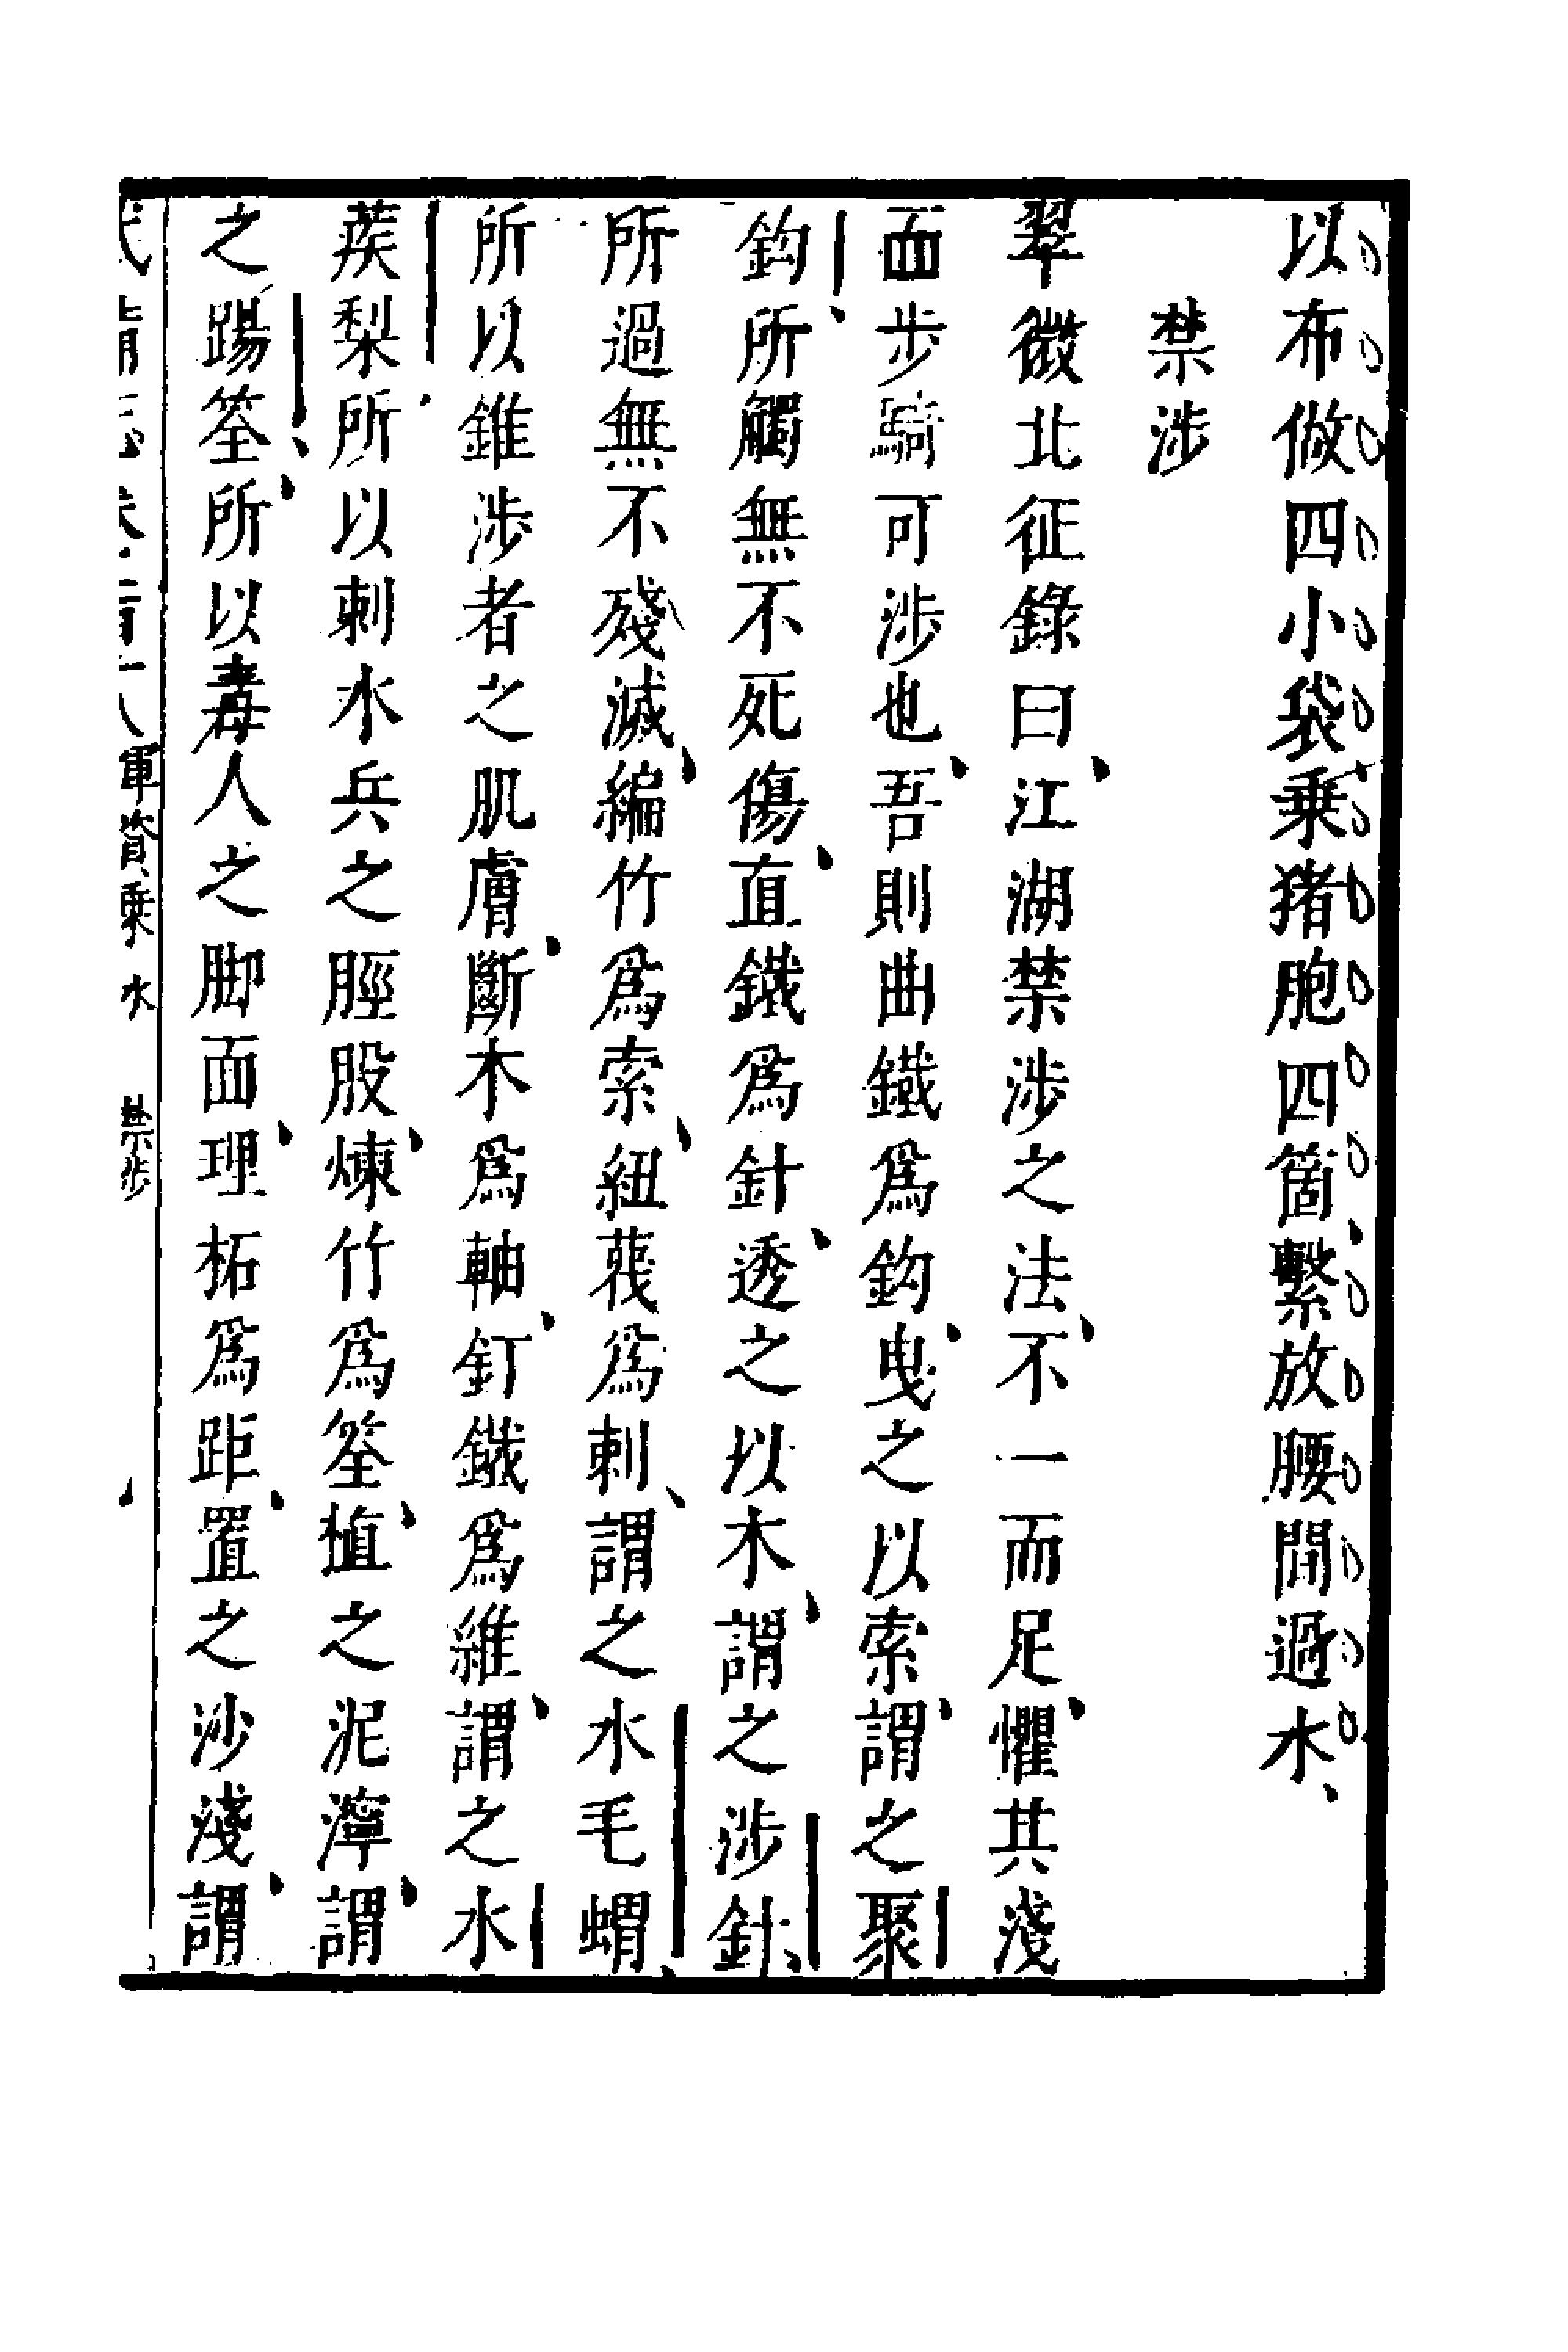 以布做四小袋乗猪胞四箇繫放腰間過水、
禁涉
翠微北征錄曰、江湖禁涉之法、不一而足、懼其淺
而步騎可涉也、吾則曲鐵爲鈎、曳之以索、謂之聚
鈎、所觸無不死傷、直鐵爲針、透之以木、謂之涉針、
所過無不殘滅、編竹爲索、紐茙爲刺、謂之水毛蝟、
所以錐涉者之肌膚、斷木爲軸、釘鐵爲維、謂之水
蒺梨、所以刺水兵之脛股、煉竹爲筌、植之泥濘、謂
之踼筌、所以毒人之脚面、理柘爲距、置之沙淺、謂
武備志卷一百十八 軍資乗 水 禁涉